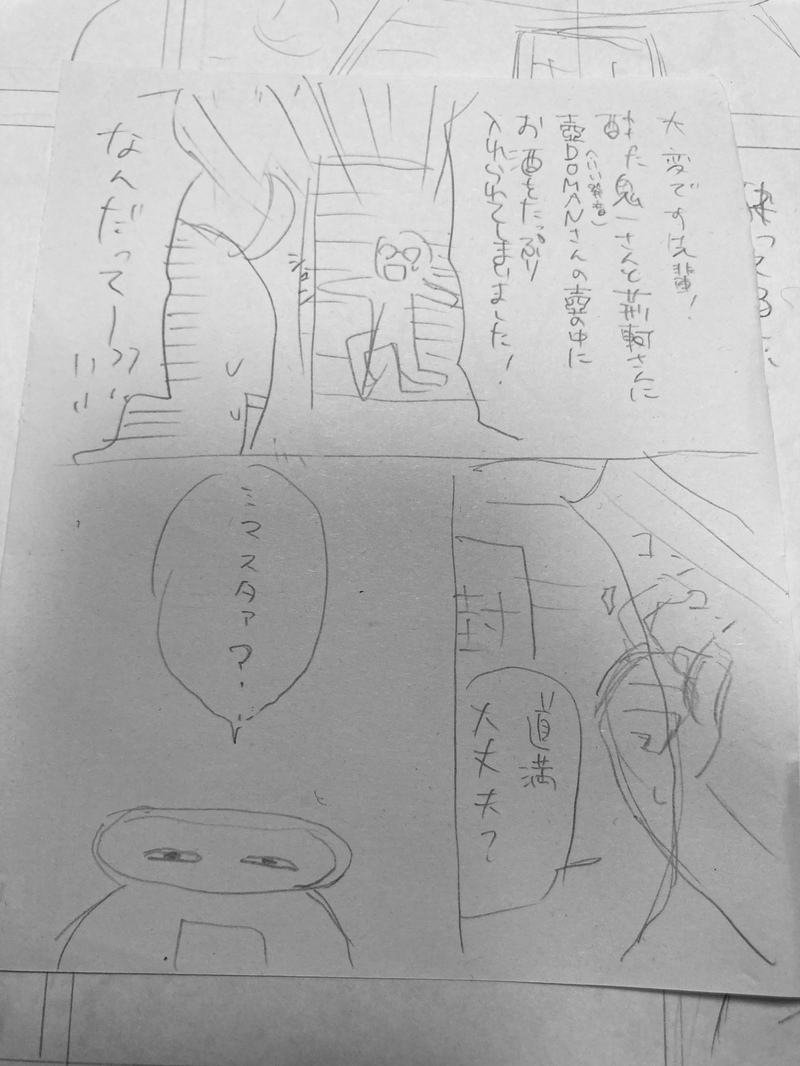 大変です先輩!
酔た鬼一さんと荊軻さんに
壺DOMANさんの壺の中に
(いい発音)
お酒をたっぷり
入れられてしまいました!
なんだってー
コンコン
封
道満
大丈夫?
ミマスタァ?